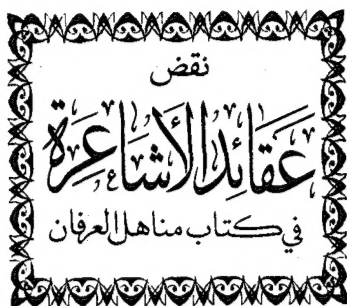 نقض
عقائد الأشاعرة
في كتاب مناهل العرفان